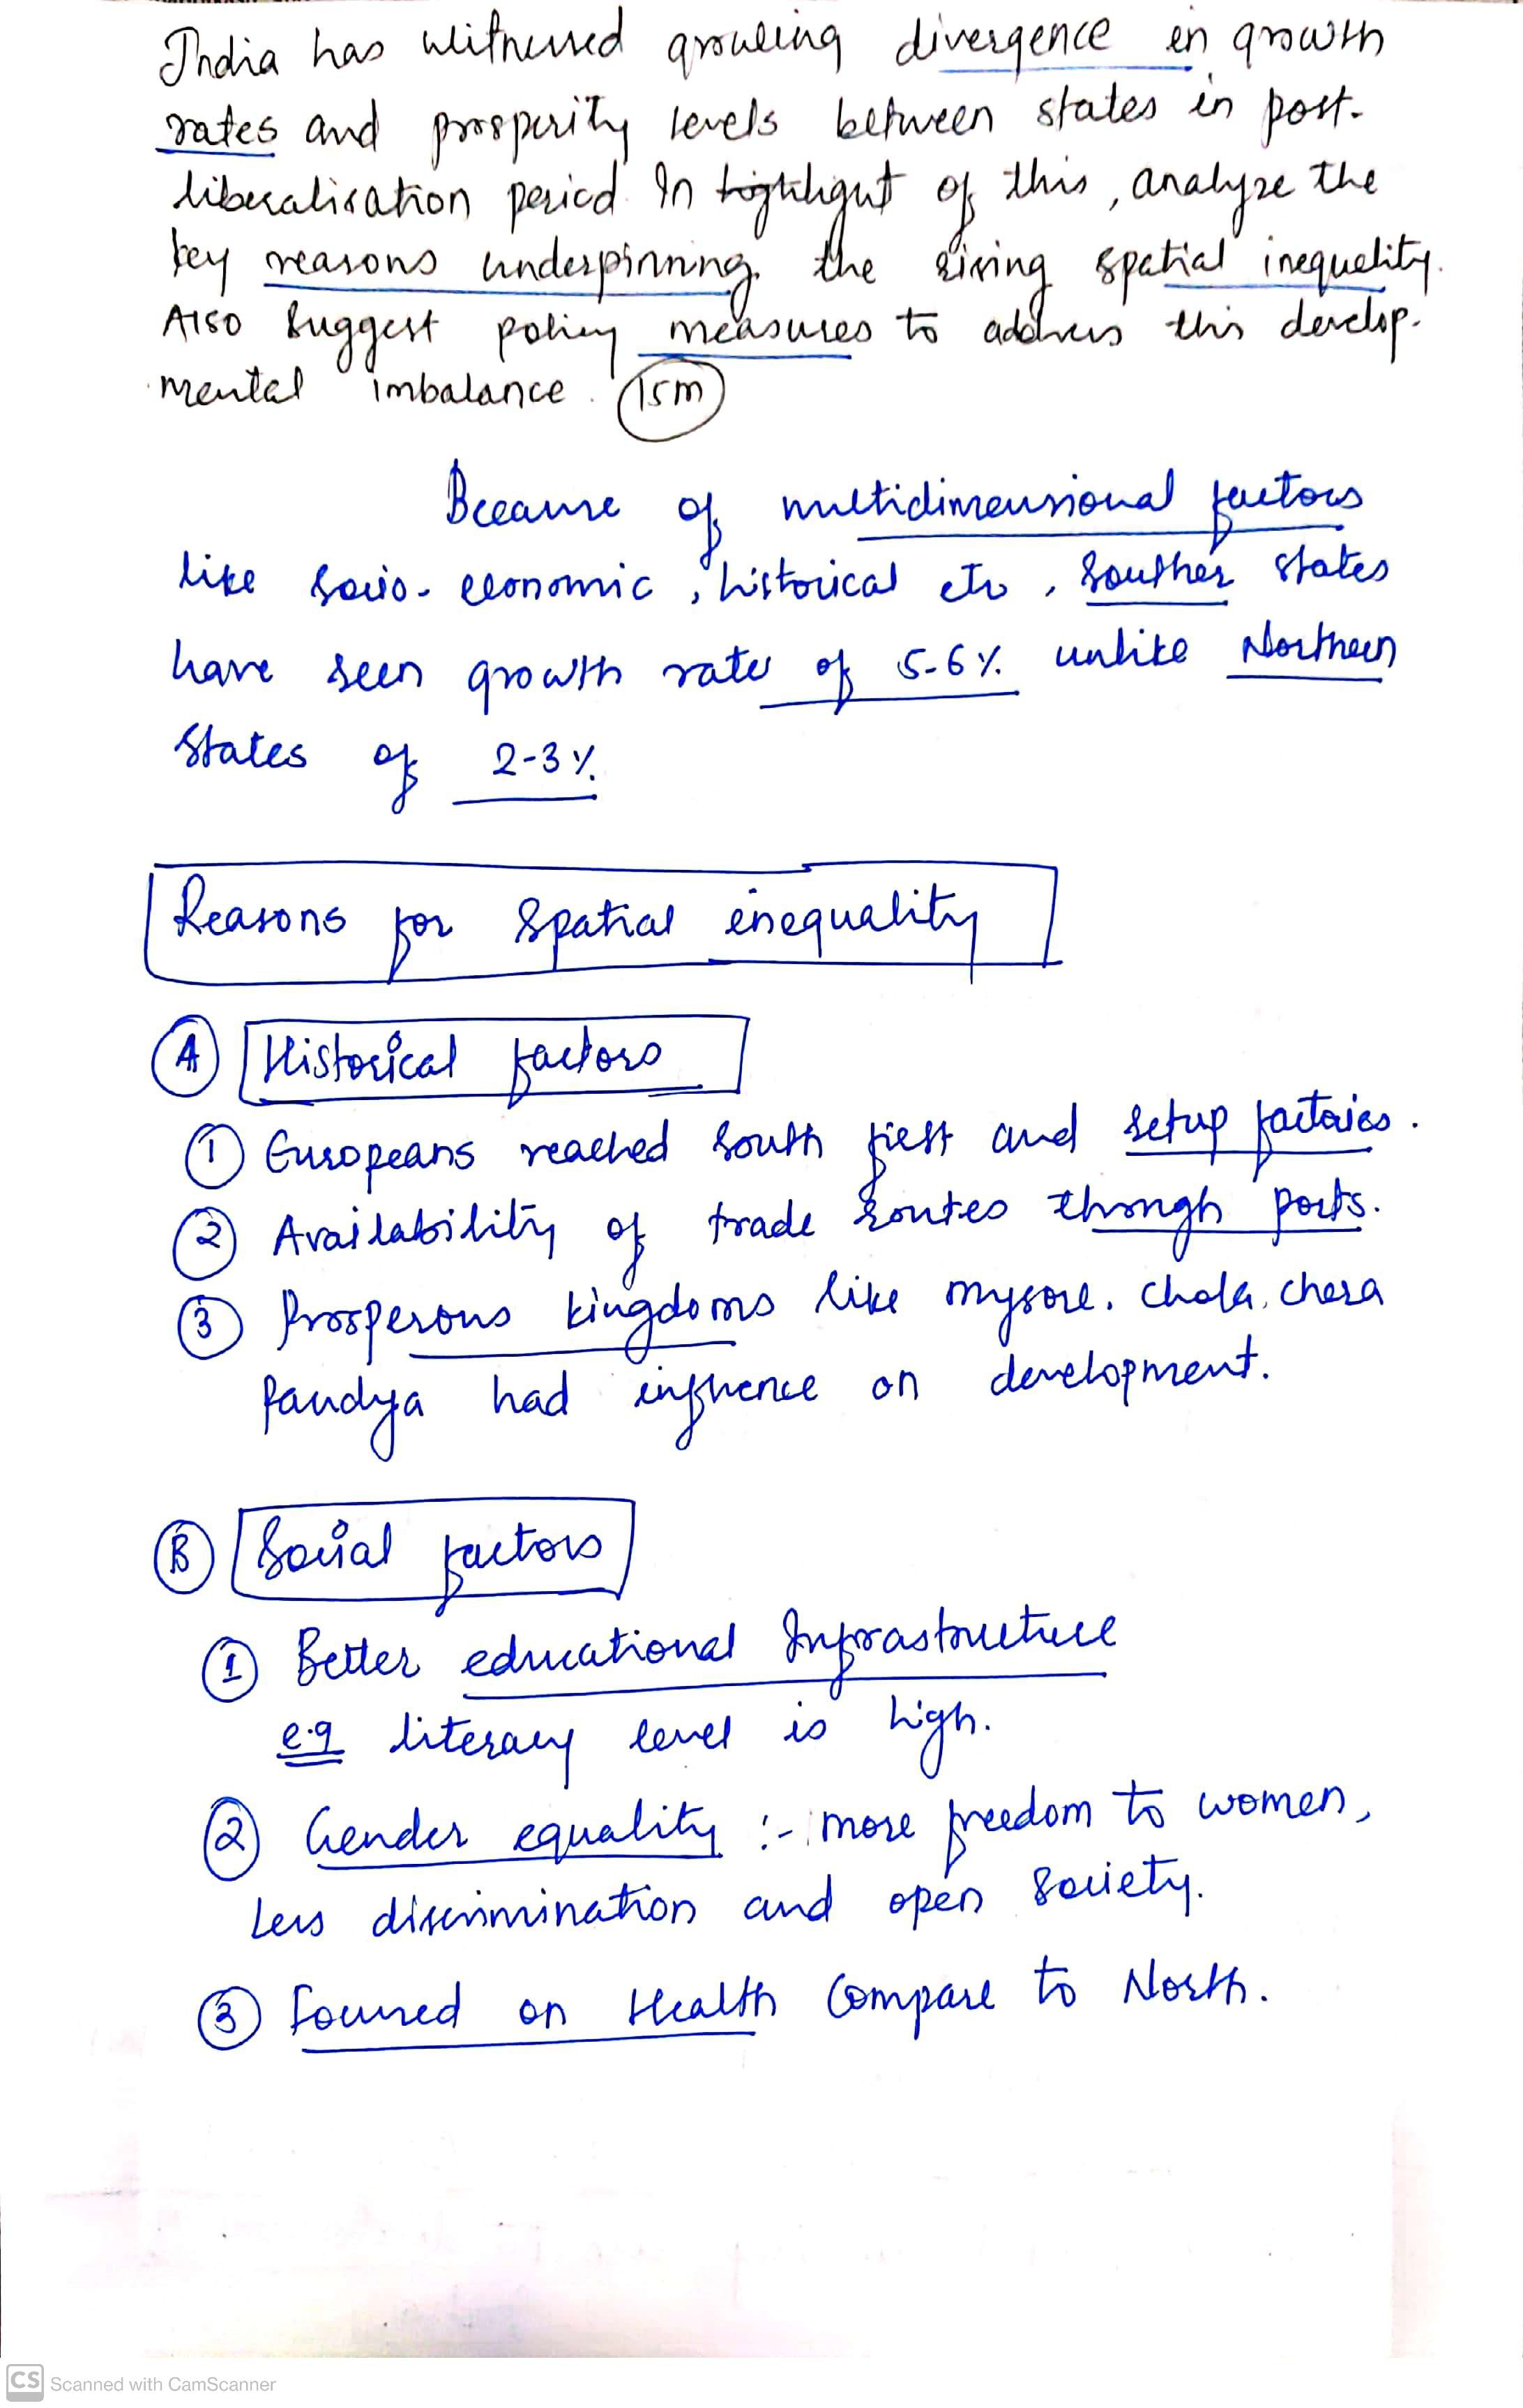 India has witnessed growing divergence in growth
rates and prosperity levels between states in post-
liberalisation period. In highlight of this, analyze the
key reasons underpinning the rising spatial inequality.
Also suggest policy measures to address this develop-
mental imbalance. 15m
Because of multidimensional factors
like socio-economic, historical etc, souther states
have seen growth rates of 5-6% unlike Northern
states of 2-3%
Reasons for spatial inequality
A Historical factors
1 Europeans reached south first and setup factories.
2 Availability of trade routes through ports.
3 Prosperous kingdoms like mysore, chola, chera
Pandya had influence on development.
B Social factors
1 Better educational Infrastructure
e.g literacy level is high.
2 Gender equality :- more freedom to women,
Less discrimination and open society.
3 Focused on Health Compare to North.
CS Scanned with CamScanner